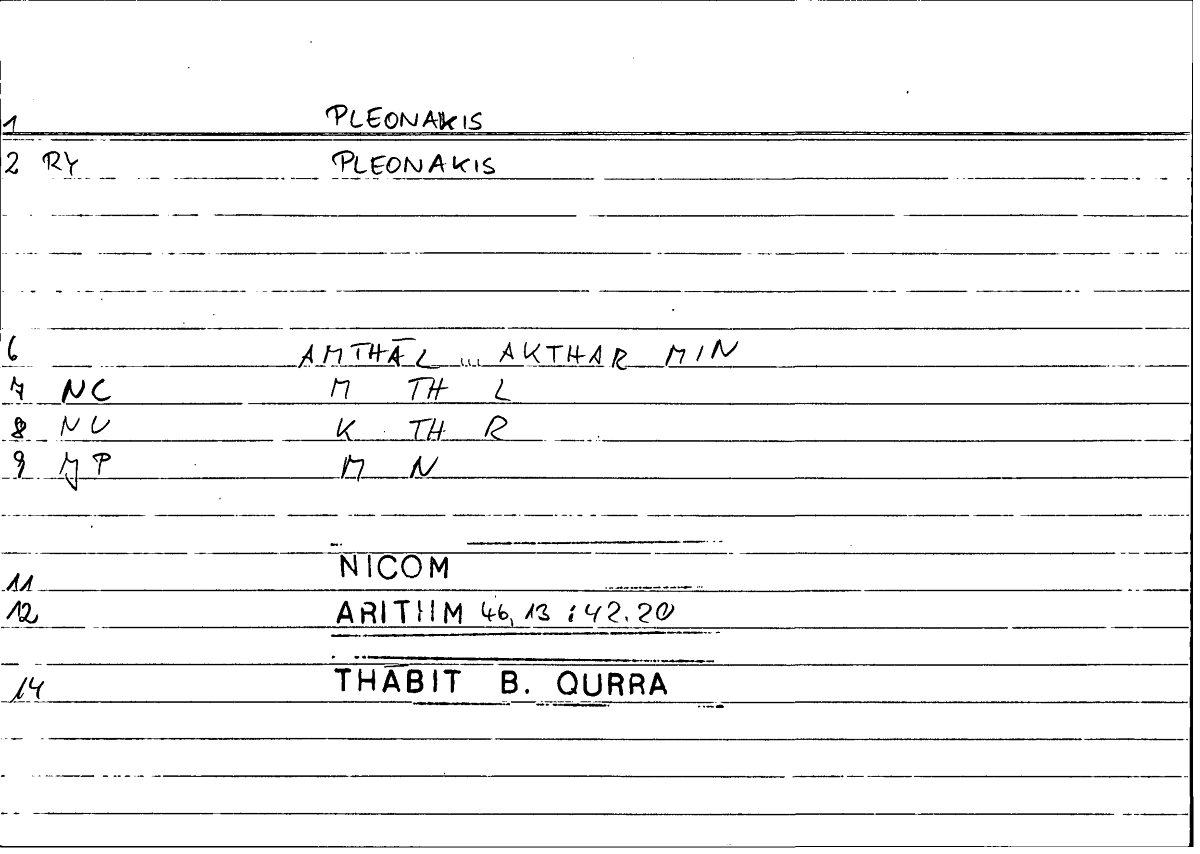 1 PLEONAKIS
2 RY PLEONAKIS
6 AMTHĀL ... AKTHAR MIN
7 NC M TH L
8 NU K TH R
9 JP M N
11 NICOM
12 ARITHM 46,13 : 42.20
14 THĀBIT B. QURRA